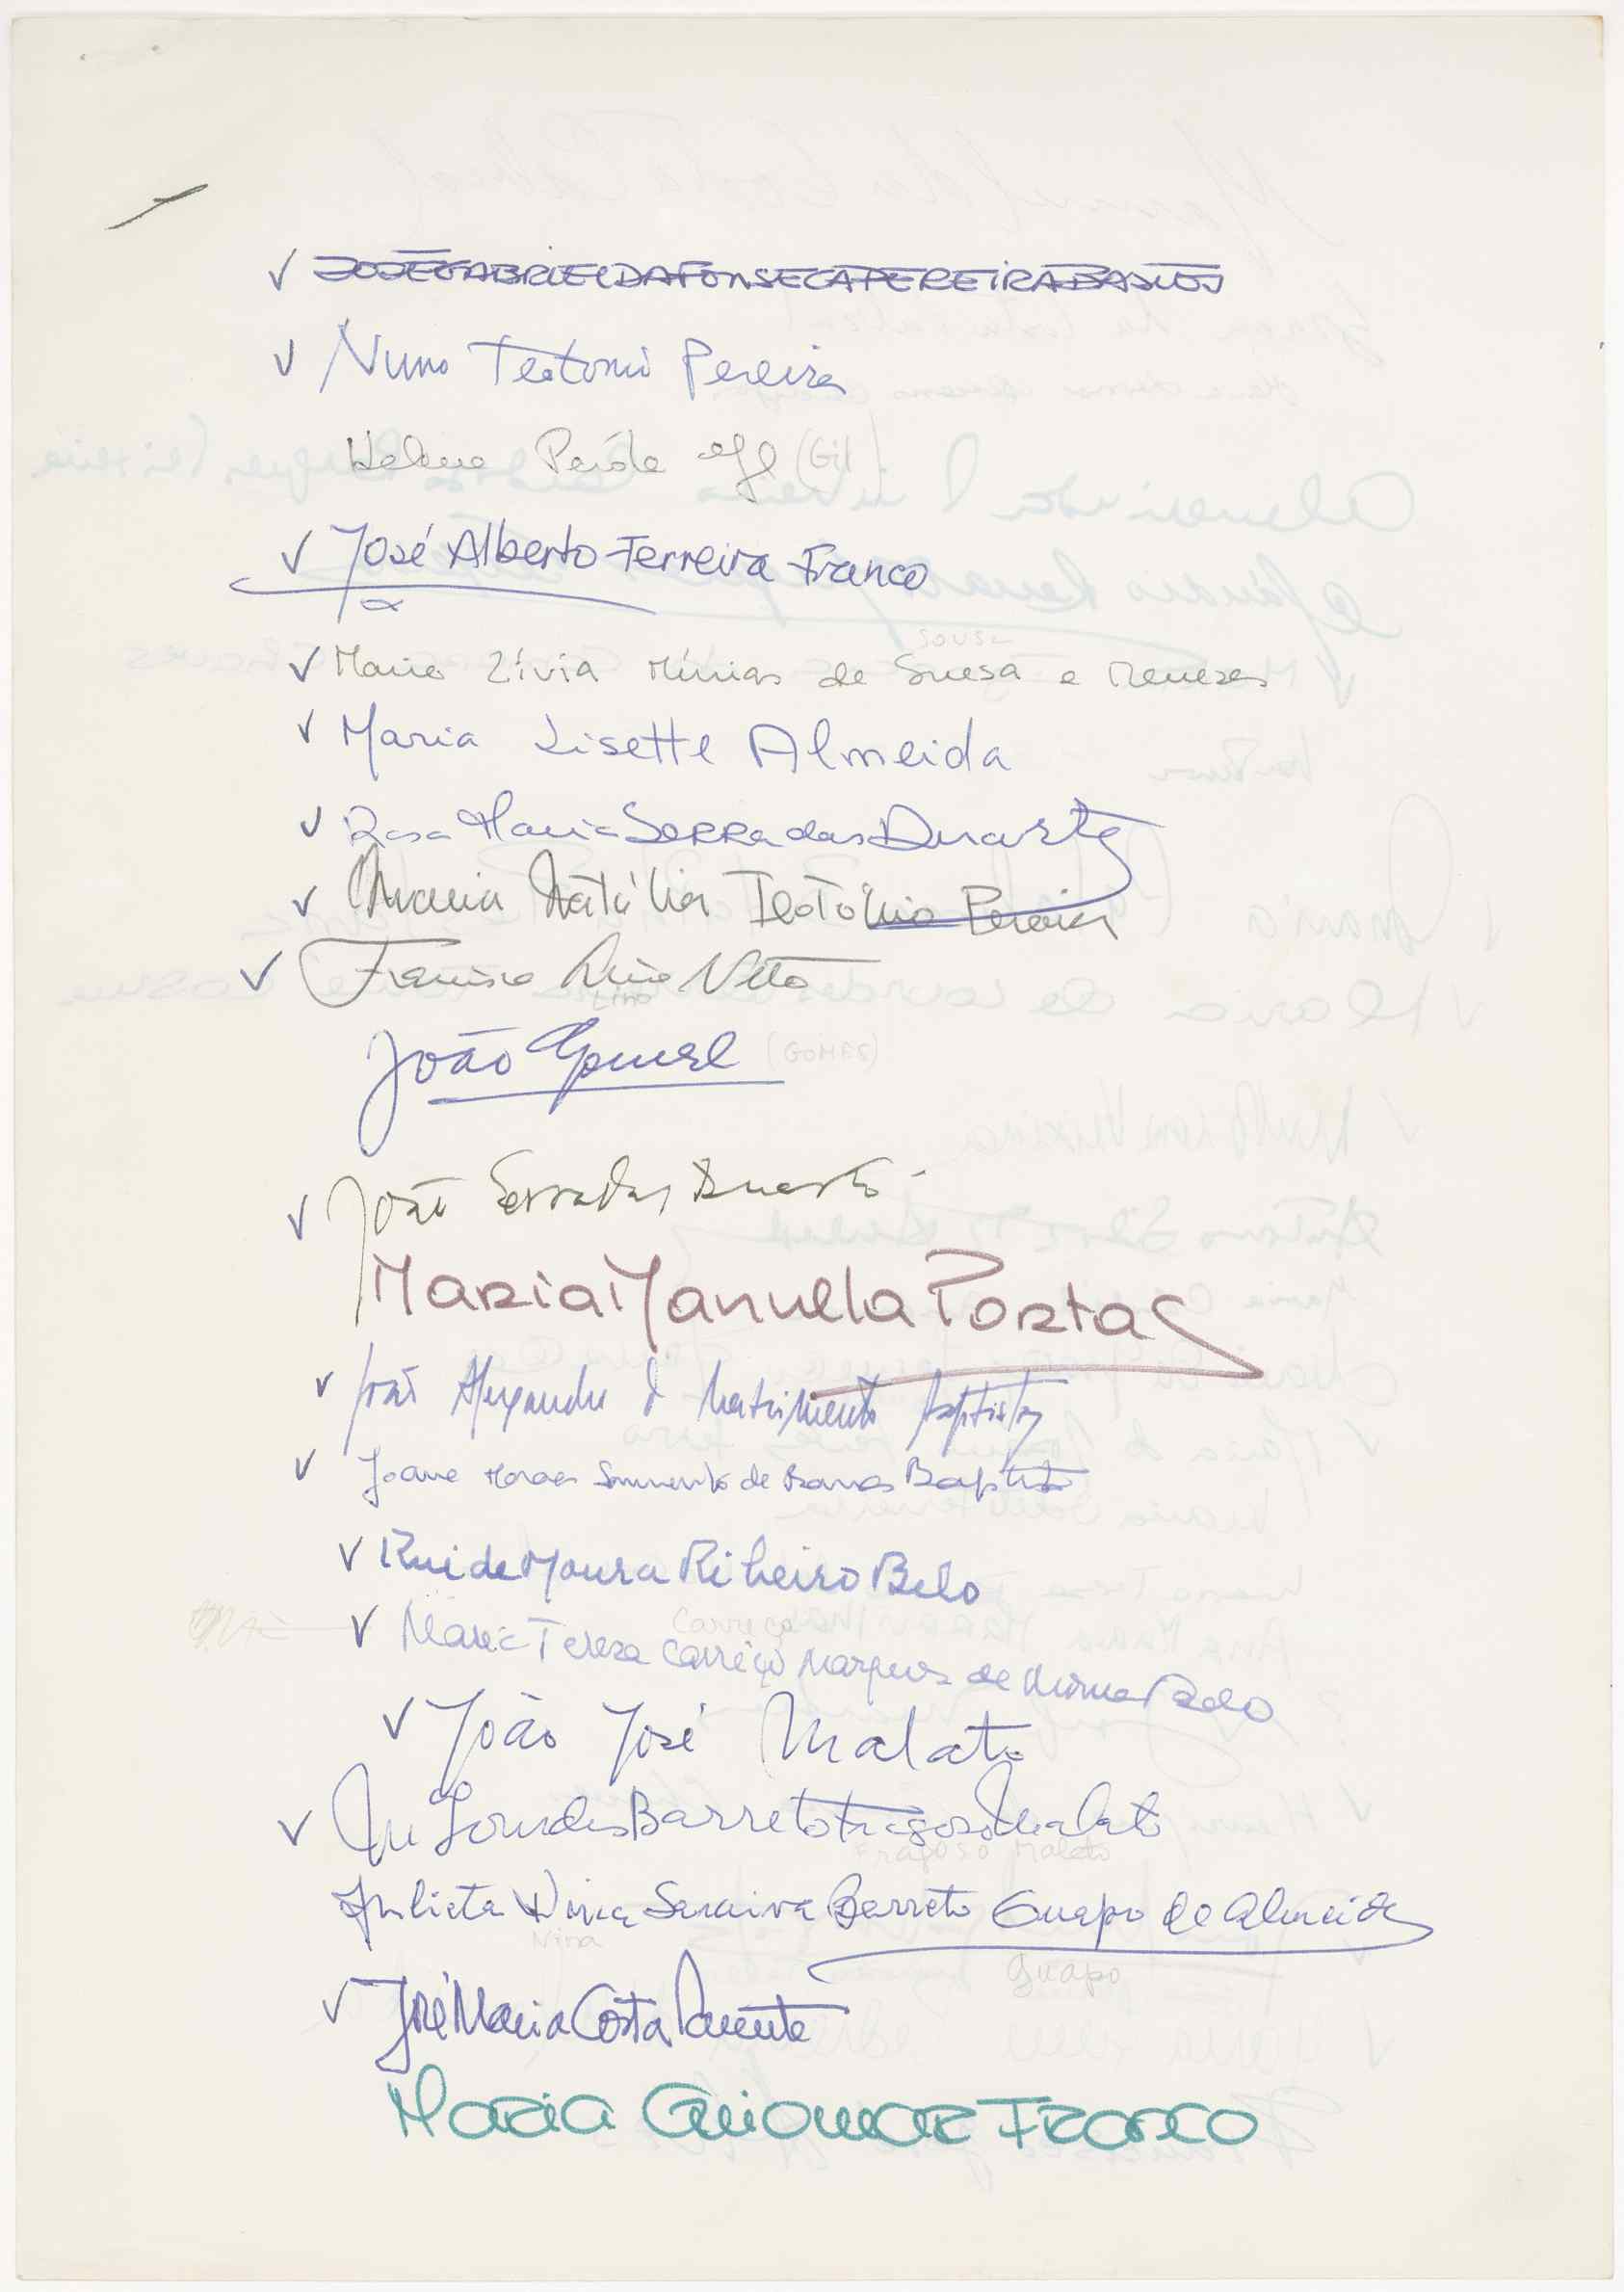 ✓ JOSÉ GABRIEL DA FONSECA PEREIRA BASTOS
✓ Nuno Teotónio Pereira
Helena (Gil)
✓ José Alberto Ferreira Franco
Sousa
✓ Maria Lívia de Sousa e Meneses
✓ Maria Lisette Almeida
✓ Rosa Maria Serradas Duarte
✓ Maria Natália Teotónio Pereira
✓ Francisco Lino Neto
Lino
João Gomes (GOMES)
✓ João Serradas Duarte
Maria Manuella Portas
✓ João Alexandre d Nascimento Baptista
✓ Joana de Barros Baptista
✓ Rui de Moura Ribeiro Belo
Carriço
✓ Maria Teresa Carriço Marques de Moura Belo
✓ João José Malato
✓ Mª Lourdes Barreto Fragoso Malato
Fragoso Malato
Julieta Nina Saraiva Barreto Guapo de Almeida
Nina
Guapo
✓ José Maria Costa Parente
Maria Guiomar Frasco